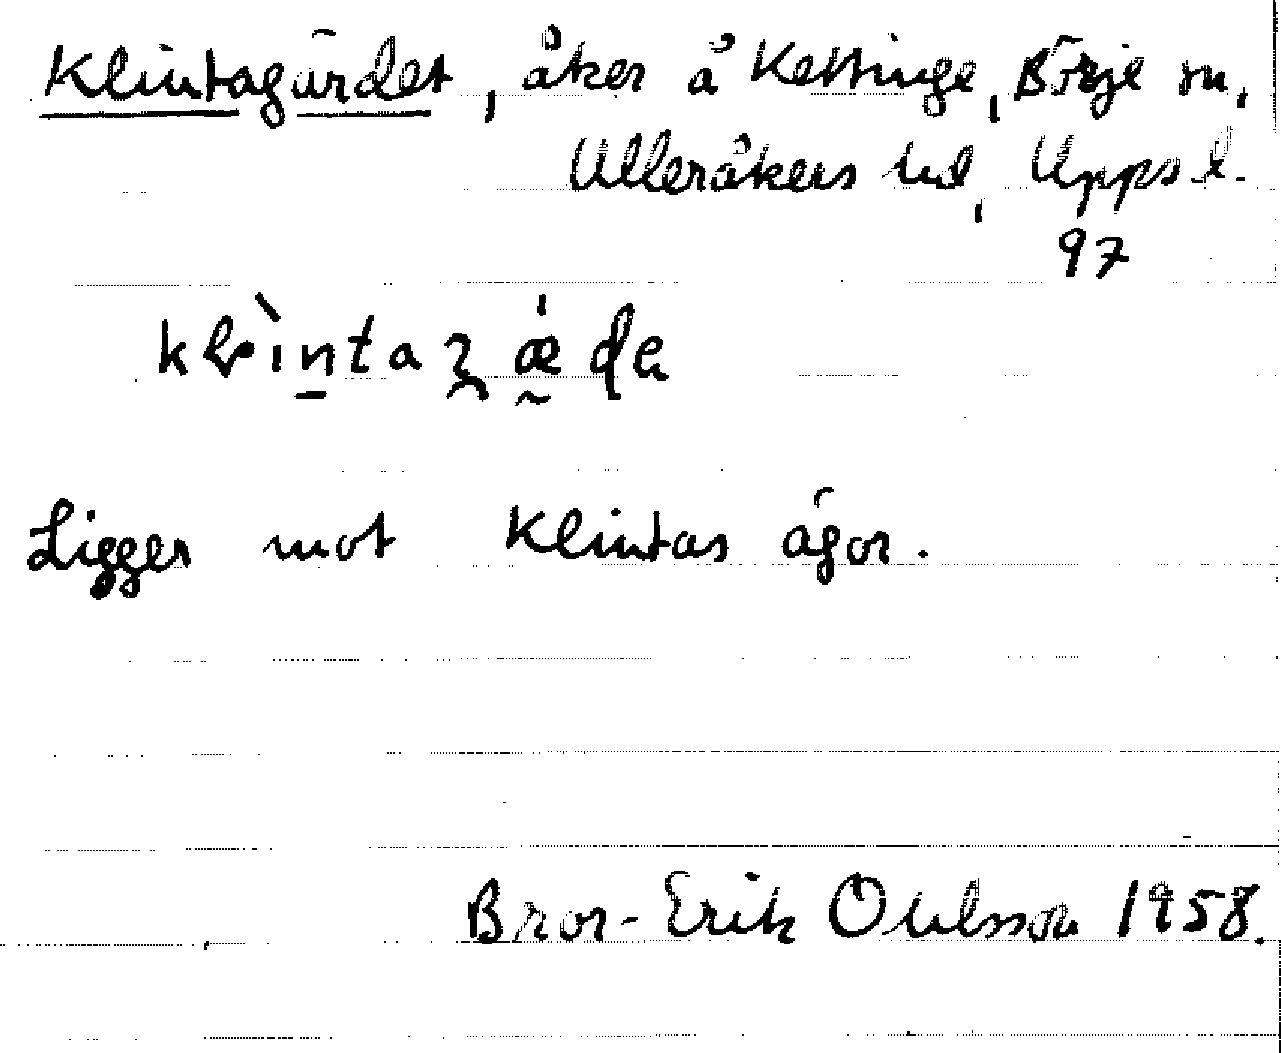 Klintagärdet, åker å Kettinge, Börje sn,
Ulleråkers hd, Upps. l.
97
klìntaʒǽde
Ligger mot Klintas ägor.
Bror-Erik Ohlsson 1958.